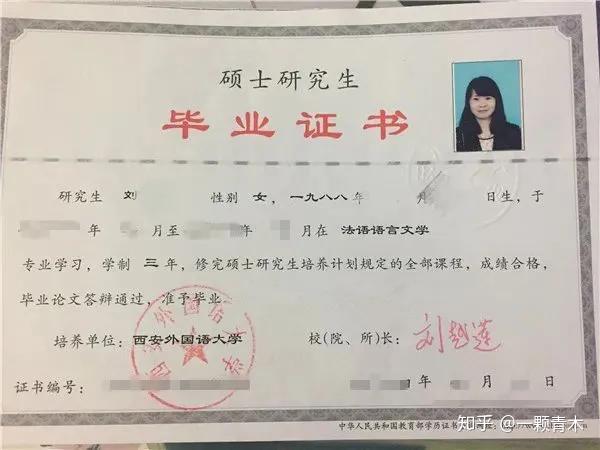 硕士研究生
毕业证书
研究生 刘 性别 女，一九八八年 月 日生，于
年 月至 年 月在 法语语言文学
专业学习，学制 三 年，修完硕士研究生培养计划规定的全部课程，成绩合格，
毕业论文答辩通过，准予毕业。
培养单位：西安外国语大学 校(院、所)长：刘越莲
西安外国语大学
证书编号： 年 月 日
中华人民共和国教育部学历证书
知乎 @一颗青木